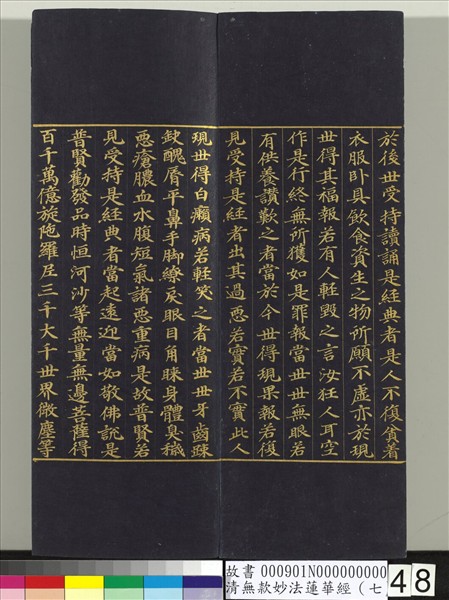 於後世受持讀誦是經典者是人不復貪著
衣服卧具飲食資生之物所願不虛亦於現
世得其福報若有人輕毀之言汝狂人耳空
作是行終無所獲如是罪報當世世無眼若
有供養讚歎之者當於今世得現果報若復
見受持是經者出其過惡若實若不實此人
現世得白癩病若輕笑之者當世世牙齒踈
缺醜脣平鼻手脚繚戾眼目角睞身體臭穢
惡瘡膿血水腹短氣諸惡重病是故普賢若
見受持是經典者當起遠迎當如敬佛說是
普賢勸發品時恒河沙等無量無邊菩薩得
百千萬億旋陀羅尼三千大千世界微塵等
故書 000901N000000000
清無款妙法蓮華經（七
48